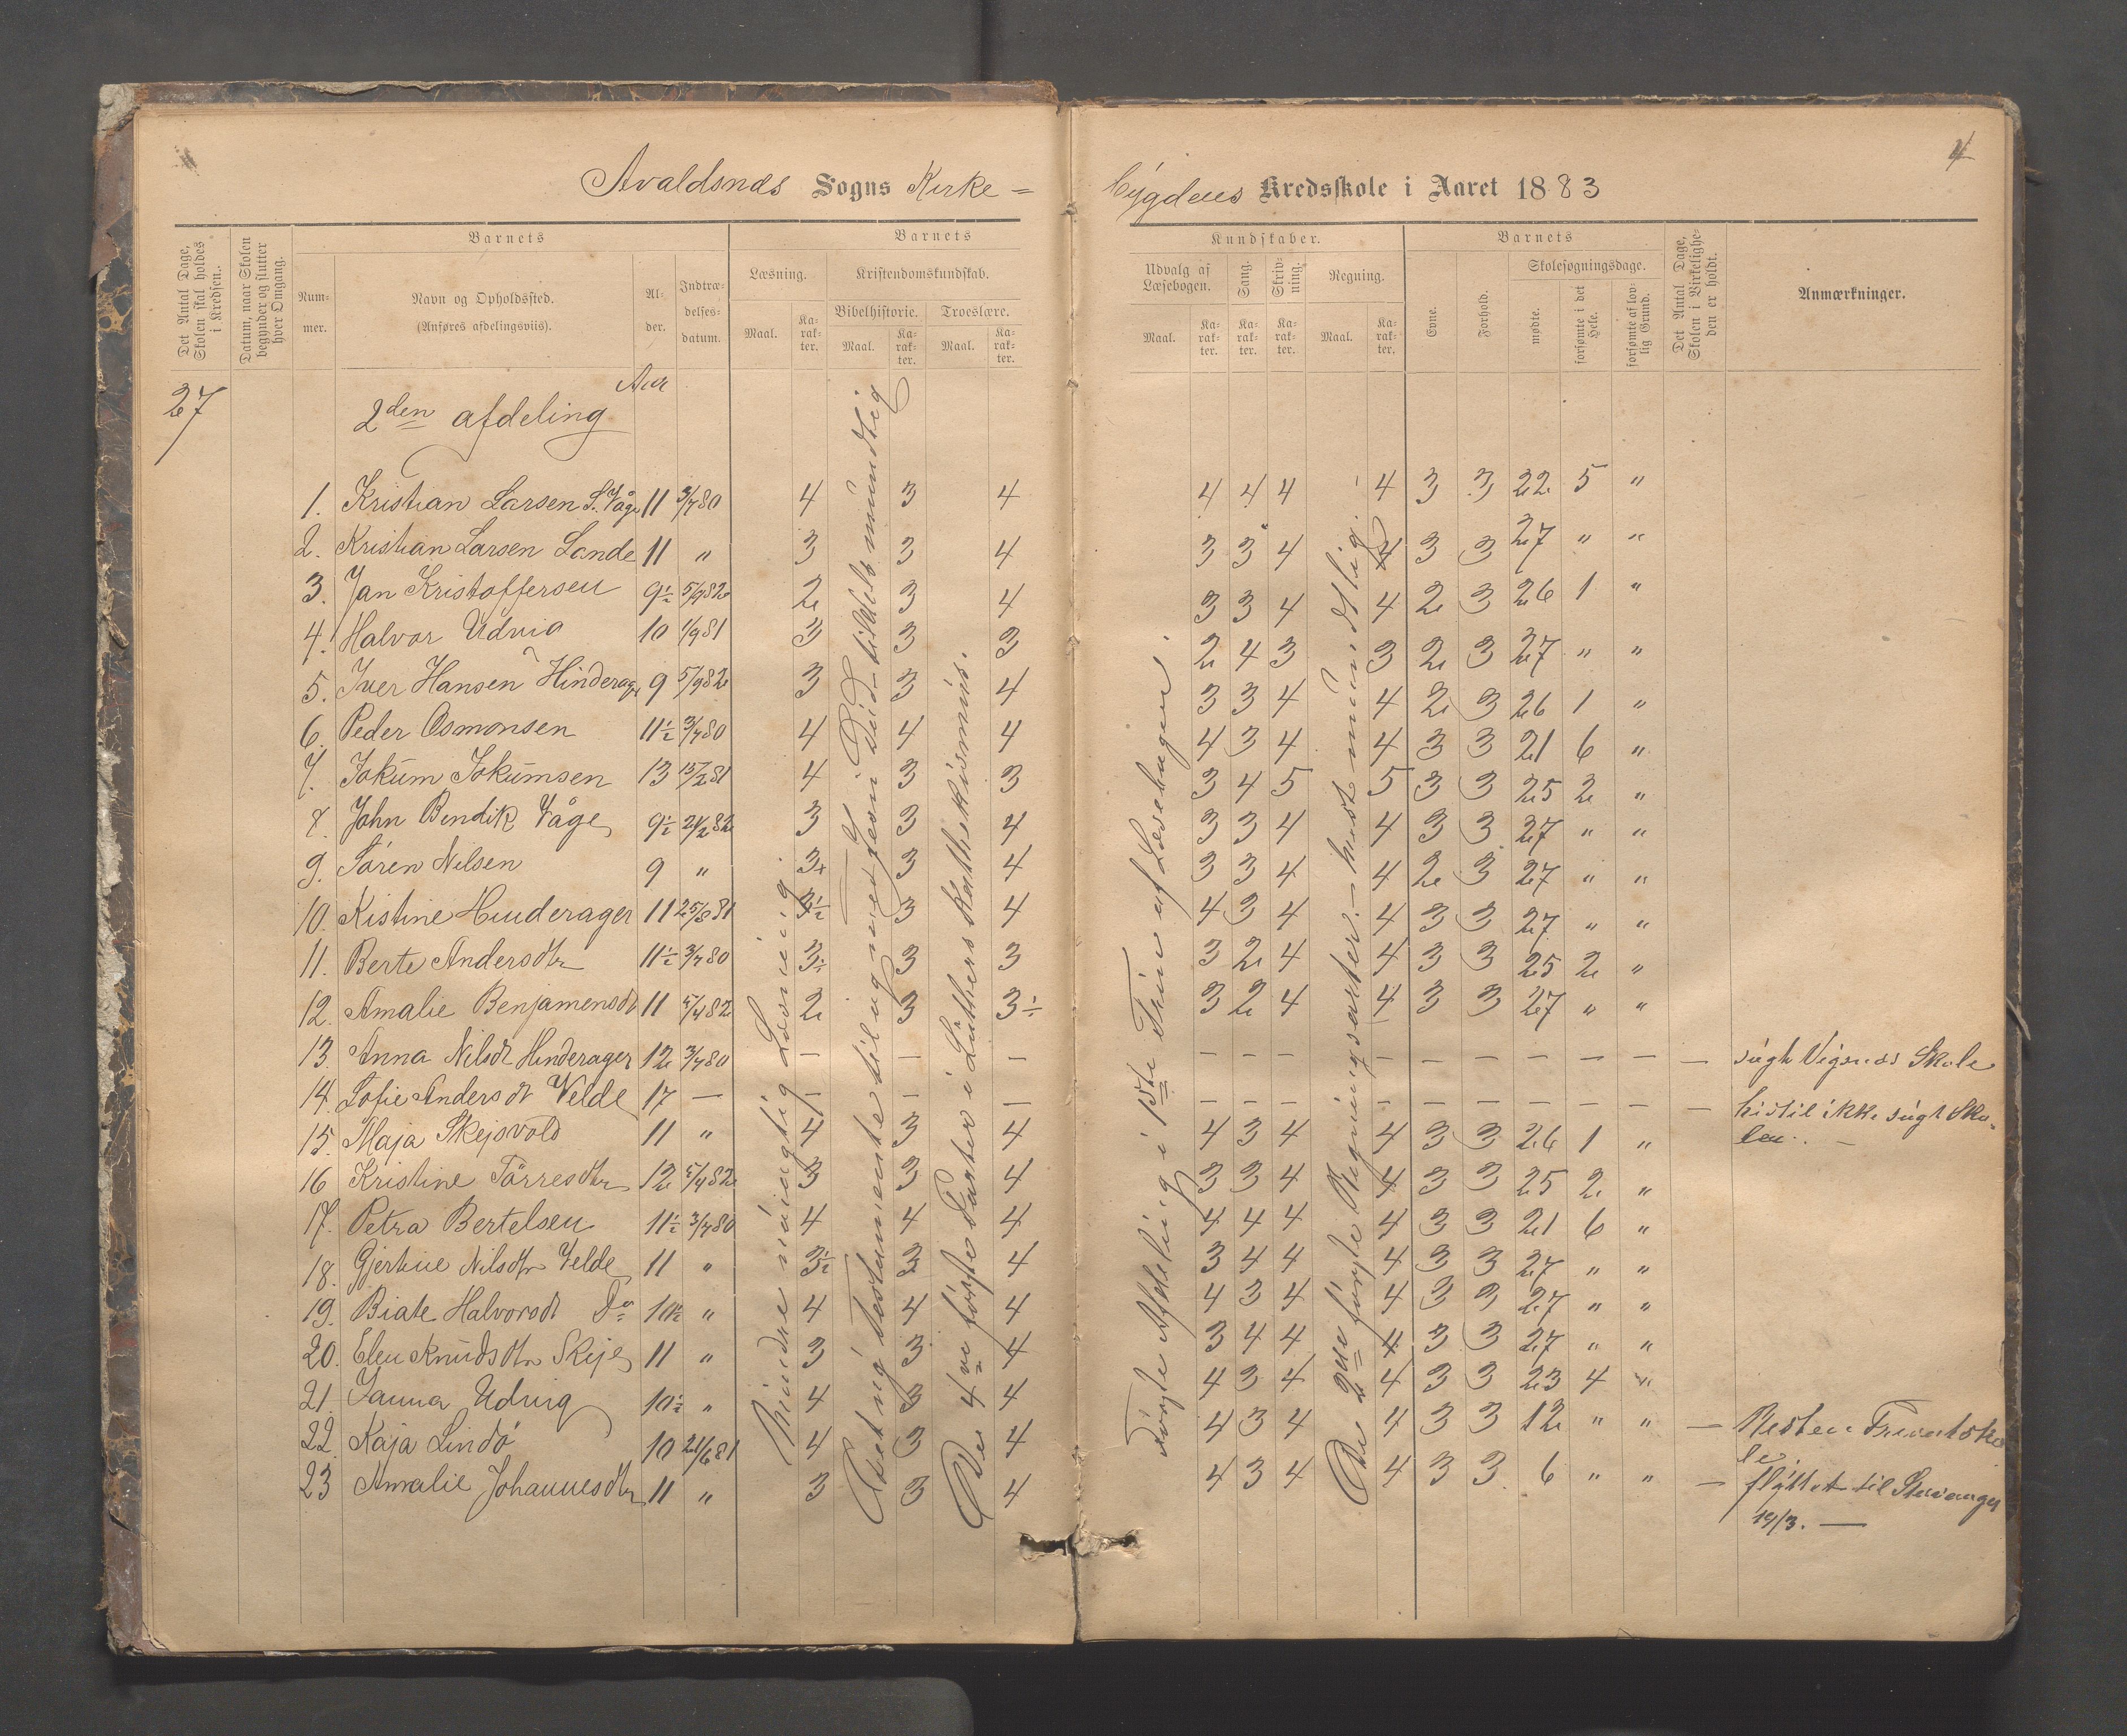 4
Avaldsnæs Sogns Kirke=
bygdens Kredsskole i Aaret 1883
Det Antal Dage, Skolen skal holdes i Kredsen.
Datum, naar Skolen begynder og slutter hver Omgang.
Barnets
Nummer.
Navn og Opholdssted.
(Anføres afdelingsviis).
Alder.
Indtrædelsesdatum.
Barnets
Læsning.
Maal.
Karakter.
Kristendomskundskab.
Bibelhistorie.
Maal.
Karakter.
Troeslære.
Maal.
Karakter.
Kundskaber.
Udvalg af Læsebogen.
Maal.
Karakter.
Sang.
Karakter.
Skrivning.
Karakter.
Regning.
Maal.
Karakter.
Barnets
Evne.
Forhold.
Skolesøgningsdage.
mødte.
forsømte i det Hele.
forsømte af lovlig Grund.
Det Antal Dage, Skolen i Virkeligheden er holdt.
Anmærkninger.
27
Aar
2den afdeling
1. Kristian Larsen S. Våge 11 3/7 80 4 3 4 4 4 4 4 3 3 22 5 "
2. Kristian Larsen Lande 11 " 3 3 4 3 3 4 4 3 3 27 " "
3. Jan Kristoffersen 9½ 5/9 82 2 3 4 3 3 4 4 2 3 26 1 "
4. Halvor Udvig 10 1/9 81 3 3 3 2 4 3 3 2 3 27 " "
5. Iver Hansen Hinderager 9 5/9 82 3 3 4 3 3 4 4 2 3 26 1 "
6. Peder Osmonsen 11½ 3/7 80 4 4 4 4 3 4 4 3 3 21 6 "
7. Jokum Jokumsen 13 15/2 81 4 3 3 3 4 5 5 3 3 25 2 "
8. John Bendik Våge 9½ 21/2 82 3 3 4 3 3 4 4 3 3 27 " "
9. Sören Nilsen 9 " 3+ 3 4 3 3 4 4 2 3 27 " "
10. Kistine Hinderager 11 25/8 81 3½ 3 4 4 3 4 4 3 3 27 " "
11. Berte Andersdtr 11½ 3/7 80 3÷ 3 3 3 2 4 4 3 3 25 2 "
12. Amalie Benjamensdt 11 5/4 82 2 3 3÷ 3 2 4 4 3 3 27 " "
13. Anna Nilsdt Hinderager 12 3/7 80 – – – – – – – – – – – – – søgt Vigsnæs Skole
14. Sofie Andersdt Velde 17 – – – – – – – – – – – – – – hertil ikke søgt Skolen. –
15. Maja Skejsvold 11 " 4 3 4 4 3 4 4 3 3 26 1 "
16 Kristine Törresdtr 12 5/4 82 3 3 4 3 3 4 4 3 3 25 2 "
17. Petra Bertelsen 11½ 3/7 80 4 4 4 4 4 4 4 3 3 21 6 "
18. Gjertine Nilsdtr Velde 11 " 3½ 3 4 3 4 4 4 3 3 27 " "
19. Biate Halvorsdt Do 10½ " 4 4 4 4 3 4 4 3 3 27 " "
20. Elen Knudsdtr Skeje 11 " 3 3 4 3 4 4 4 3 3 27 " "
21. Janna Udvig 10½ " 4 3 4 4 3 4 4 3 3 23 4 "
22. Kaja Lindö 10 21/6 81 4 3 4 4 3 4 4 3 3 12 " " – Resten Privatskole
23 Amalie Johannesdtr 11 " 3 3 4 4 3 4 4 3 3 6 " " – flyttet til Stavanger 19/3. –
Mindre nöiagtig Læsning.
Det ny Testamente til og med Jesu Död tildels mundtlig
De 4re förste Parter i Luthers Kathekismus.
förste Afdeling i 1ste Trin af Læsebogen.
De 2de förste Regningsarter. – mest mundtlig.